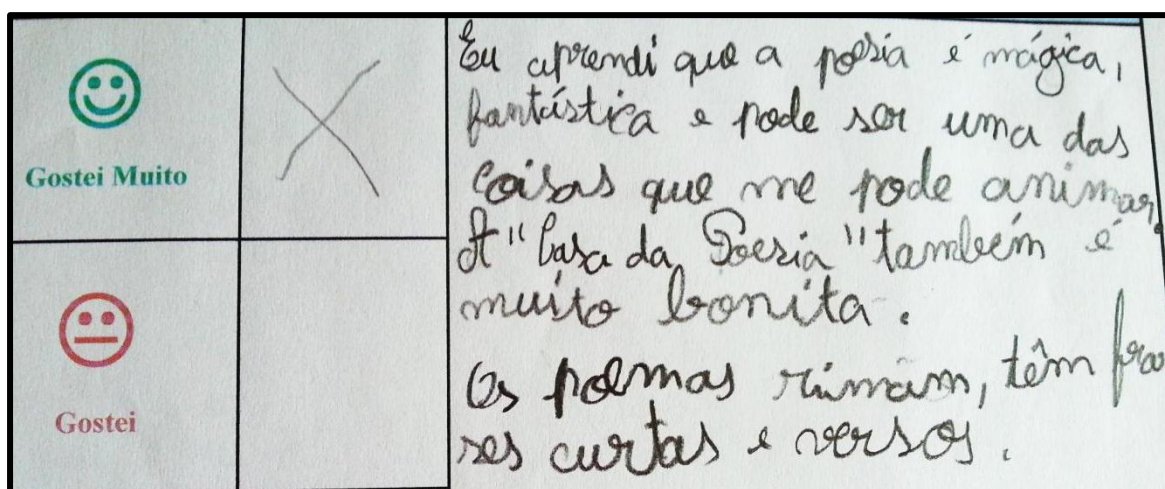 Gostei Muito
Gostei
Eu aprendi que a poesia é mágica,
fantástica e pode ser uma das
coisas que me pode animar.
A "Casa da Poesia" também é
muito bonita.
Os poemas rimam, têm fra
ses curtas e versos.